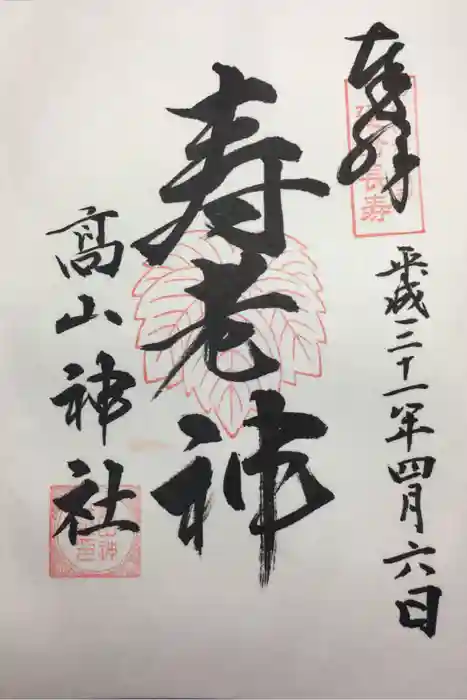 奉拝
平成三十一年四月六日
寿老神
髙山神社
長寿